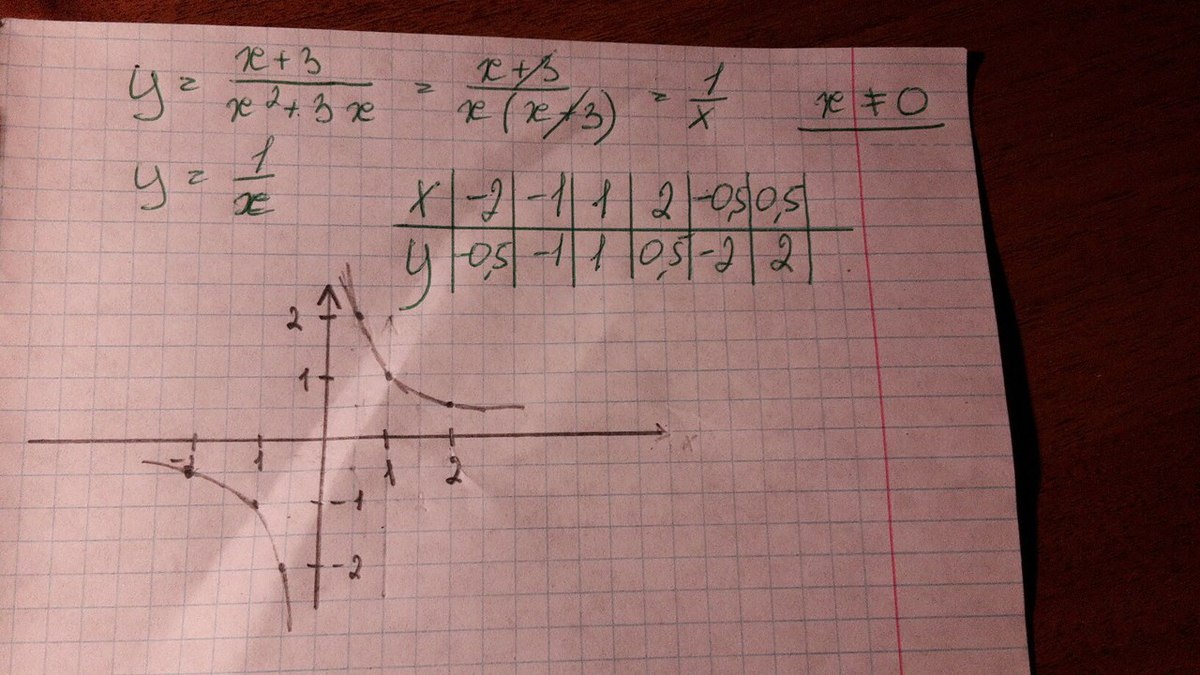 y = x+3 / x²+3x = x+3 / x(x+3) = 1/x x ≠ 0
y = 1/x
x | -2 | -1 | 1 | 2 | -0,5 | 0,5
y | -0,5 | -1 | 1 | 0,5 | -2 | 2
2
1
1 1 2 x
-1
-2